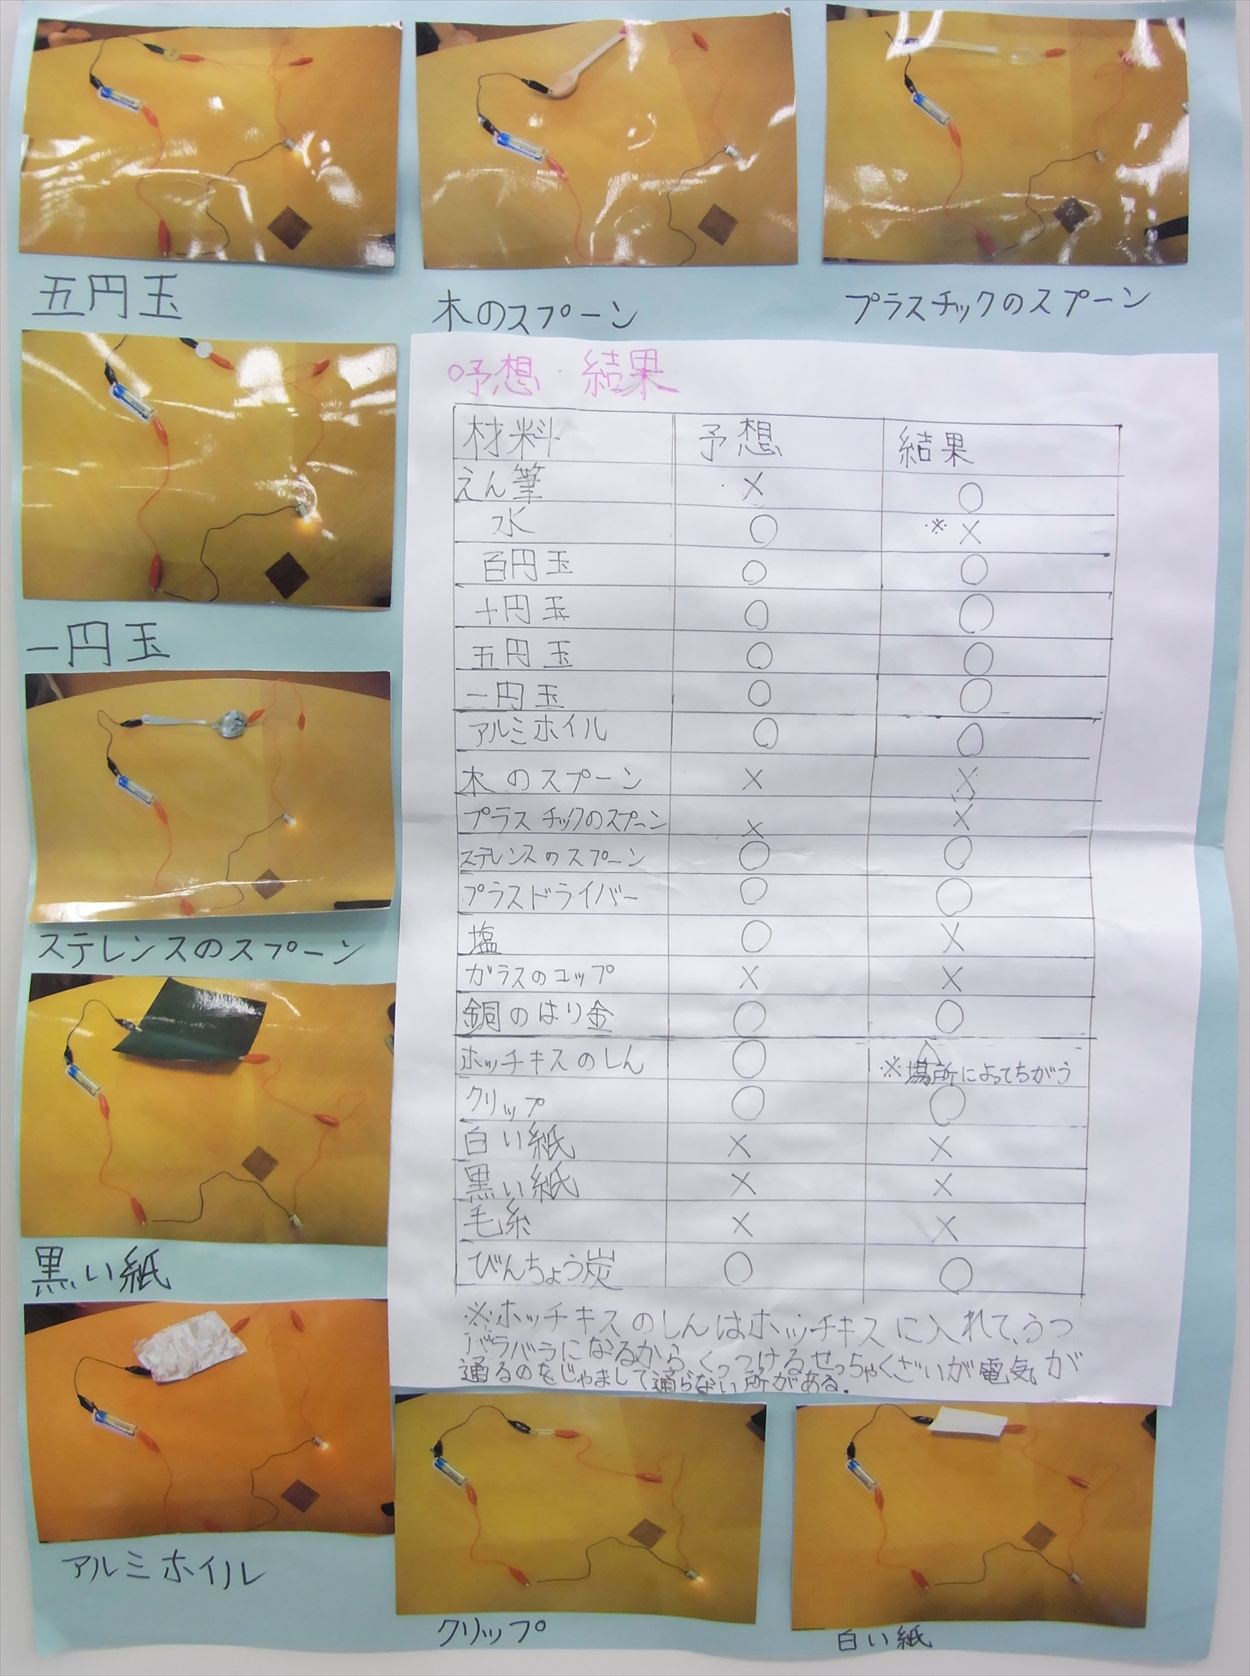 五円玉
木のスプーン
プラスチックのスプーン
一円玉
ステレンスのスプーン
黒い紙
アルミホイル
クリップ
白い紙
予想・結果
材料 予想 結果
えん筆 × ○
水 ○ ※×
百円玉 ○ ○
十円玉 ○ ○
五円玉 ○ ○
一円玉 ○ ○
アルミホイル ○ ○
木のスプーン × ×
プラスチックのスプーン × ×
ステレンスのスプーン ○ ○
プラスドライバー ○ ○
塩 ○ ×
ガラスのコップ × ×
銅のはり金 ○ ○
ホッチキスのしん ○ △ ※場所によってちがう
クリップ ○ ○
白い紙 × ×
黒い紙 × ×
毛糸 × ×
びんちょう炭 ○ ○
※ホッチキスのしんはホッチキスに入れて、うつ
バラバラになるから、くっつけるせっちゃくざいが電気が
通るのをじゃまして通らない所がある.